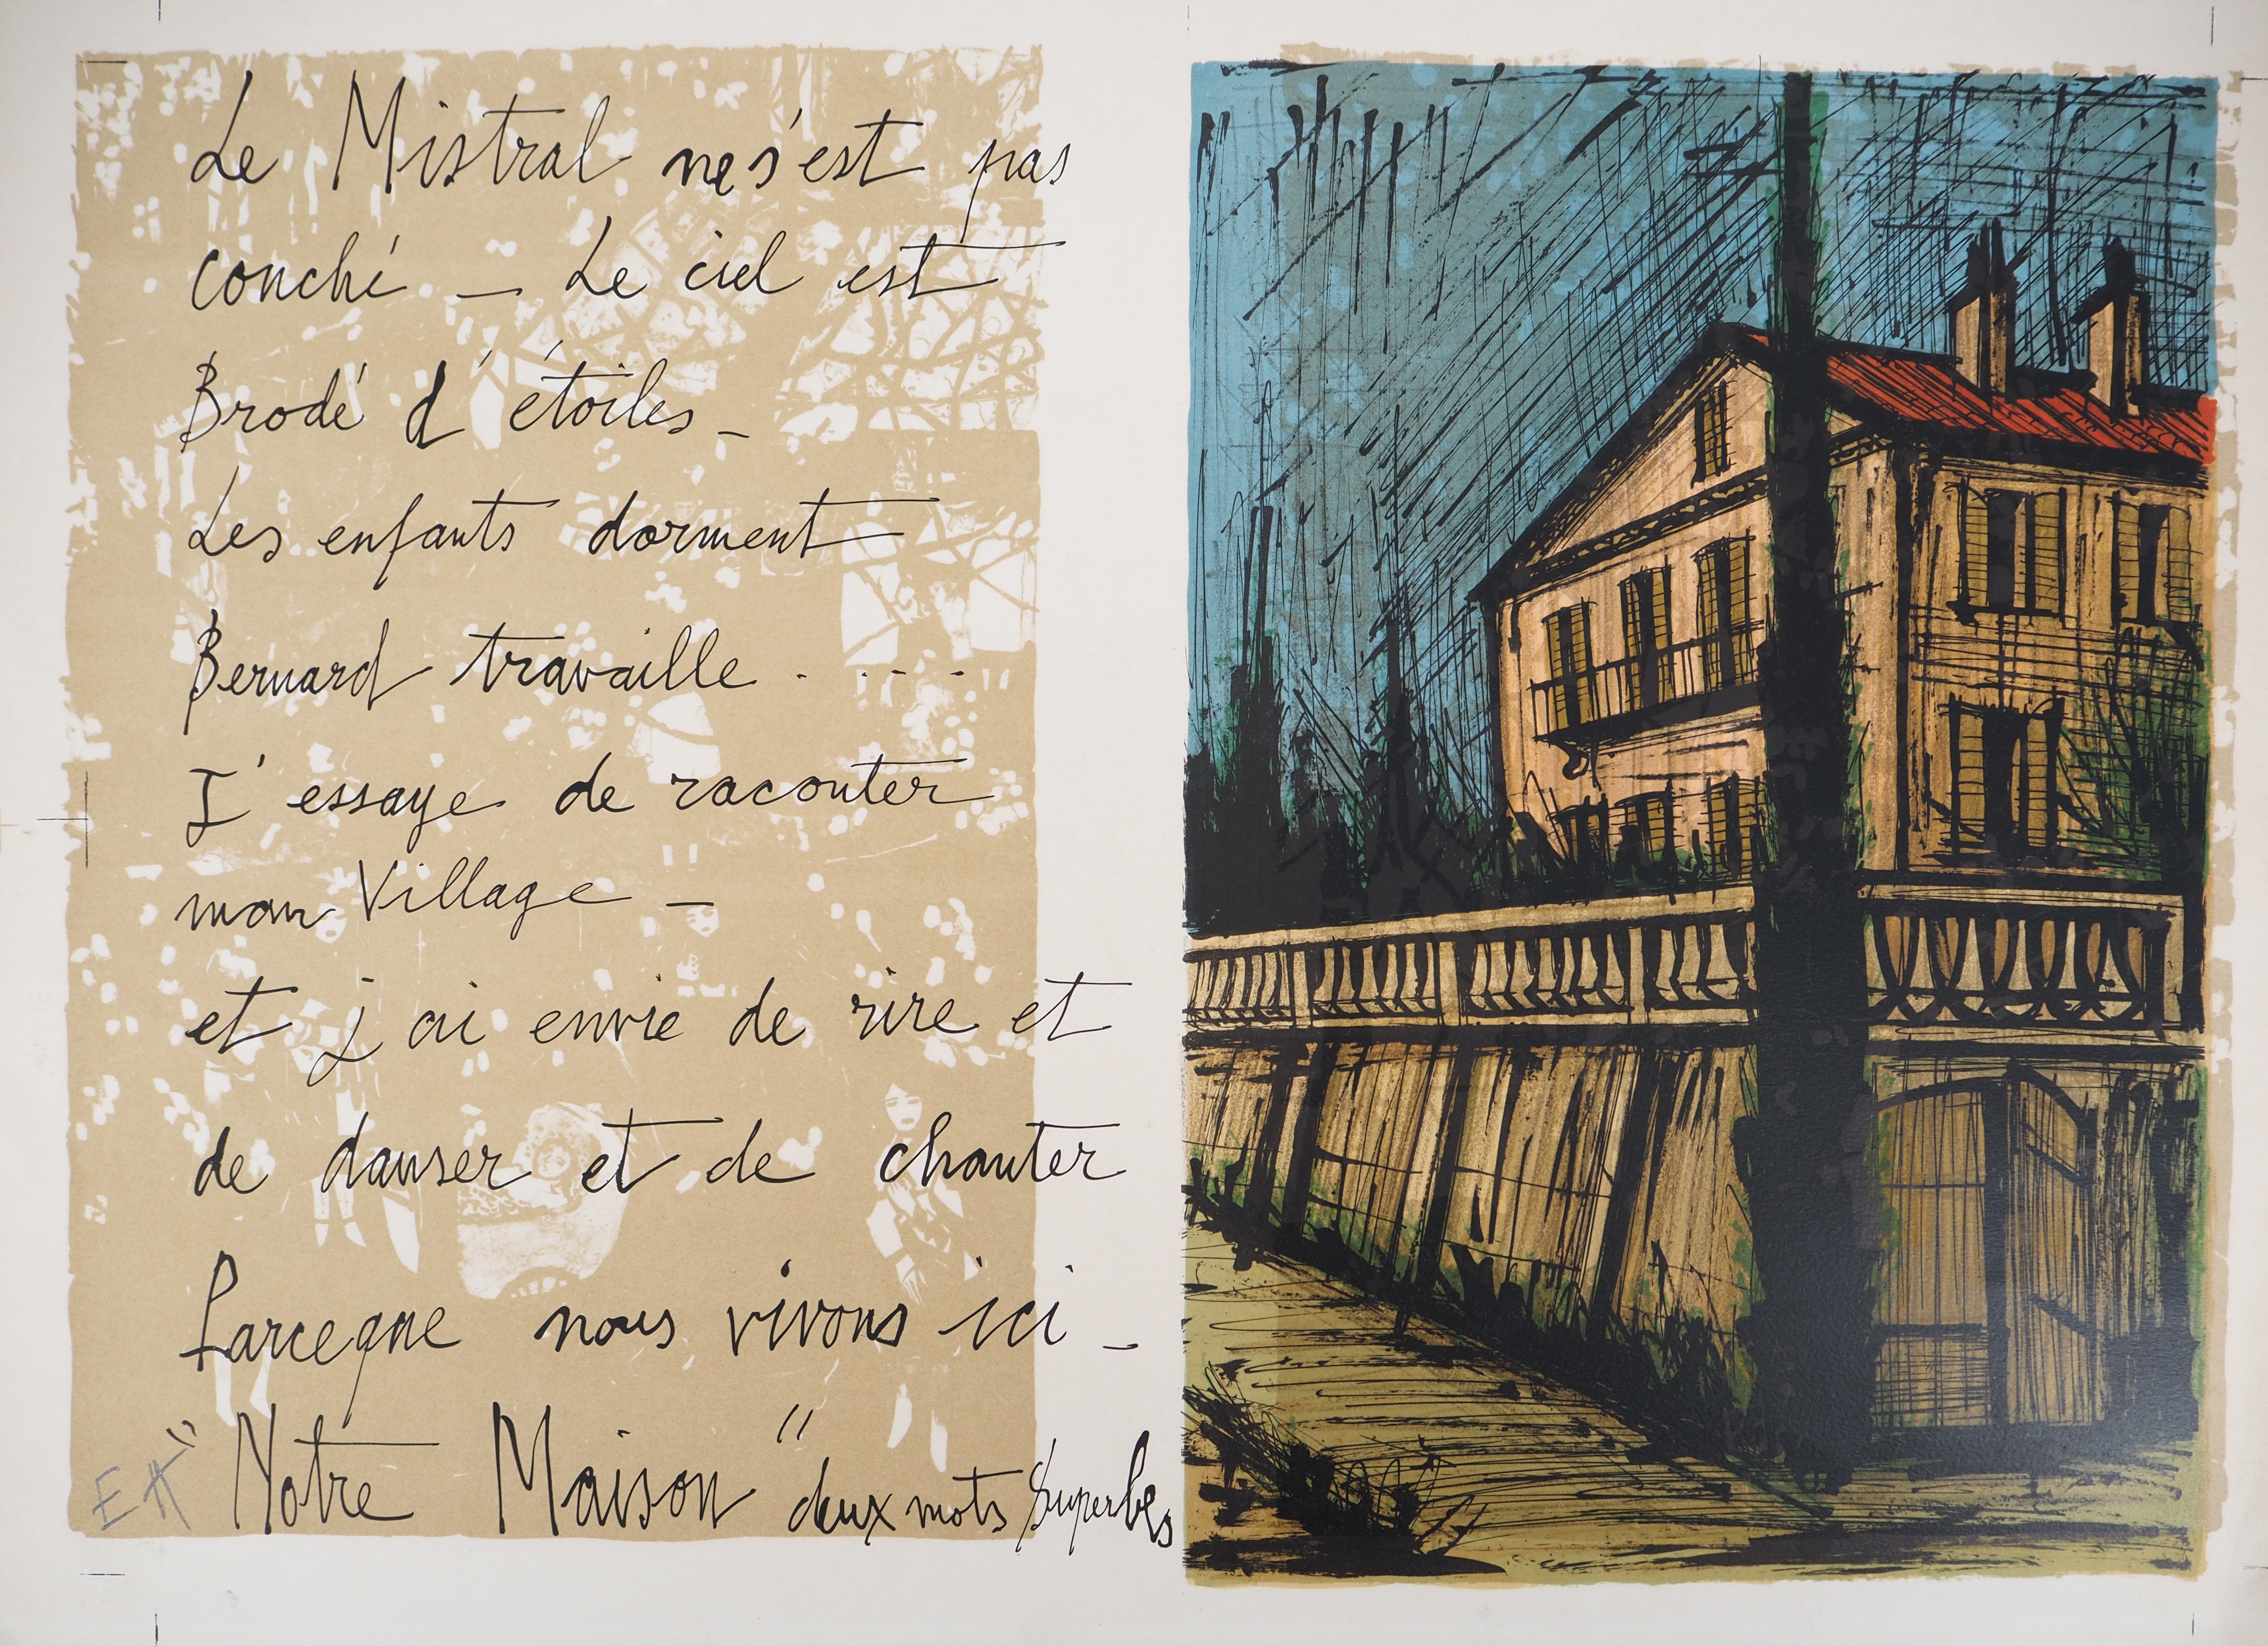 Le Mistral ne s'est pas
couché _ Le ciel est
Brodé d'étoiles _
Les enfants dorment
Bernard travaille . . . .
J'essaye de raconter
mon Village _
et j'ai envie de rire et
de danser et de chanter
Parceque nous vivons ici _
"Notre Maison" deux mots superbes
EA